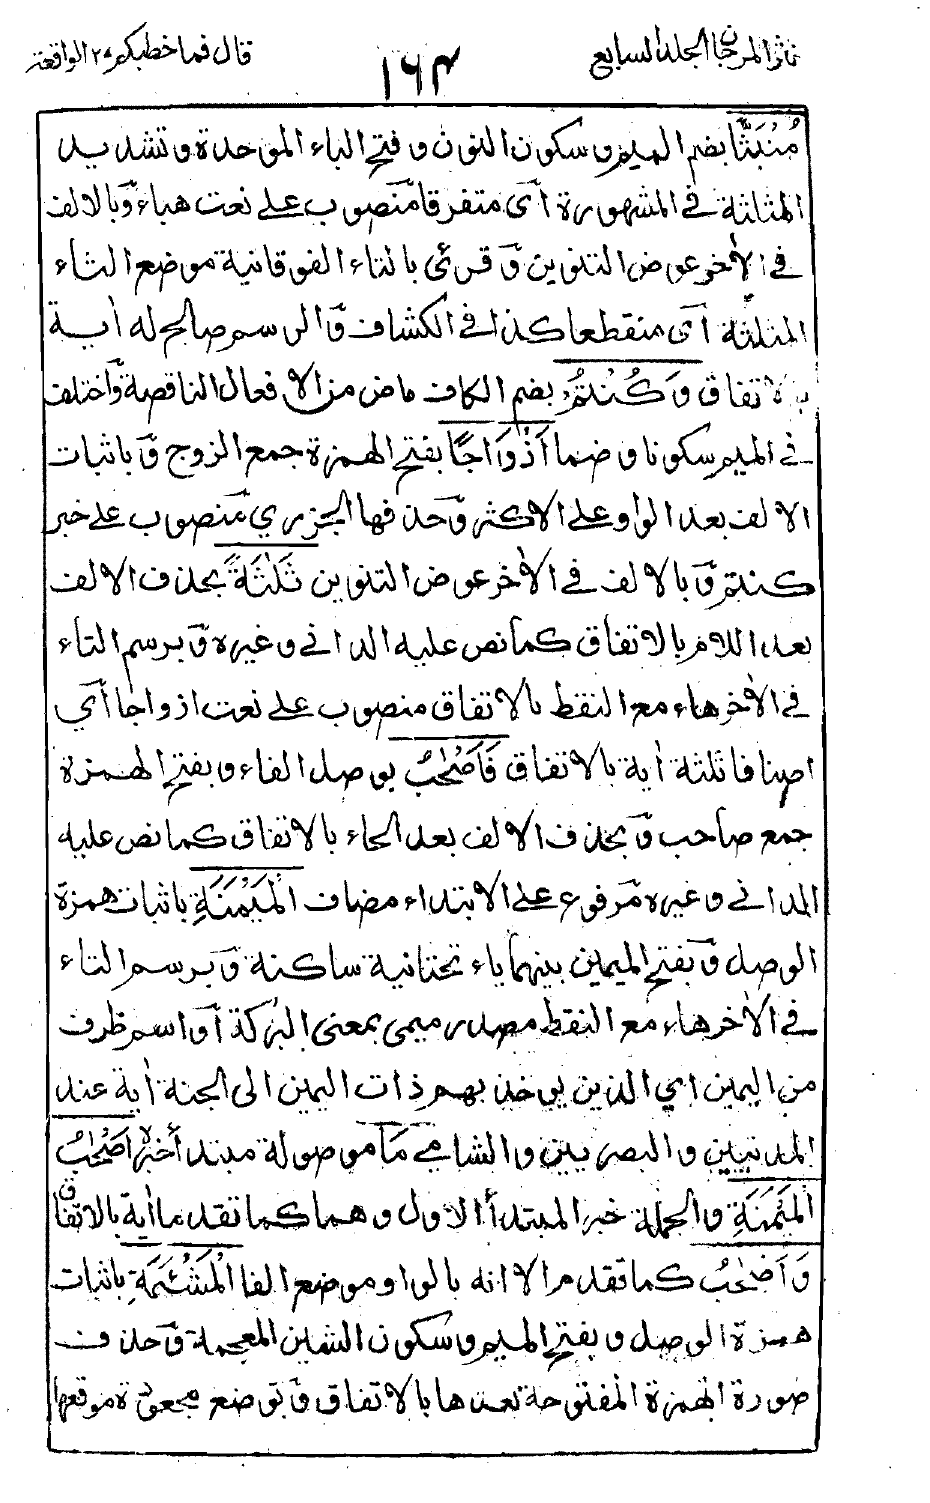 نثر المرجان الجلد السابع
١٦٤
قال فما خطبكم ٢٧ الواقعة
مُنْبَثًّا بضم الميم و سكون النون و فتح الباء الموحدة و تشديد
المثلثة في المشهورة اَى متفرقا مَّنصوب على نعت هباء وَّبالالف
في الاٰخر عوض التنوين وَّ قرئ بالتاء الفوقانية موضع الثاء
المثلثة اَى منقطعا كذا في الكشاف وَّالرسم صالح له اٰية
بالاتفاق وَّ كُنْتُمْ بضم الكاف ماض من الافعال الناقصة وَّاختلف
في الميم سكونا و ضما اَزْوَاجًا بفتح الهمزة جمع الزوج وَّ باثبات
الالف بعد الواو على الاكثر وَّحذفها الجزري مَّنصوب على خبر
كنتم وَّ بالالف في الاٰخر عوض التنوين ثَلٰثَةً بحذف الالف
بعد اللام بالاتفاق كما نص عليه الداني و غيره وَّ برسم التاء
في الاٰخر هاء مع النقط بالاتفاق منصوب على نعت ازواجا اَي
اصنافا ثلثة اٰية بالاتفاق فَاَصْحٰبُ بوصل الفاء و بفتح الهمزة
جمع صاحب وَّ بحذف الالف بعد الحاء بالاتفاق كما نص عليه
الداني و غيره مَّرفوع على الابتداء مضاف الْمَيْمَنَةِ باثبات همزة
الوصل وَّ بفتح الميمين بينهما ياء تحتانية ساكنة وَّ برسم التاء
في الاٰخر هاء مع النقط مصدر ميمى بمعنى البركة اَو اسم ظرف
من اليمين اي الذين يوخذ بهم ذات اليمين الى الجنة اٰية عند
المدنيين و البصريين و الشامي مَآ موصولة مبتدأ خبره اَصْحٰبُ
الْمَيْمَنَةِ و الجملة خبر المبتدأ الاول و هما كما تقدما اٰية بالاتفاق
وَ اَصْحٰبُ كما تقدم الا انه بالواو موضع الفا الْمَشْئَمَةِ باثبات
همزة الوصل و بفتح الميم و سكون الشين المعجمة وَّحذف
صورة الهمزة المفتوحة بعدها بالاتفاق وَّ بوضع مجعودة موقعها